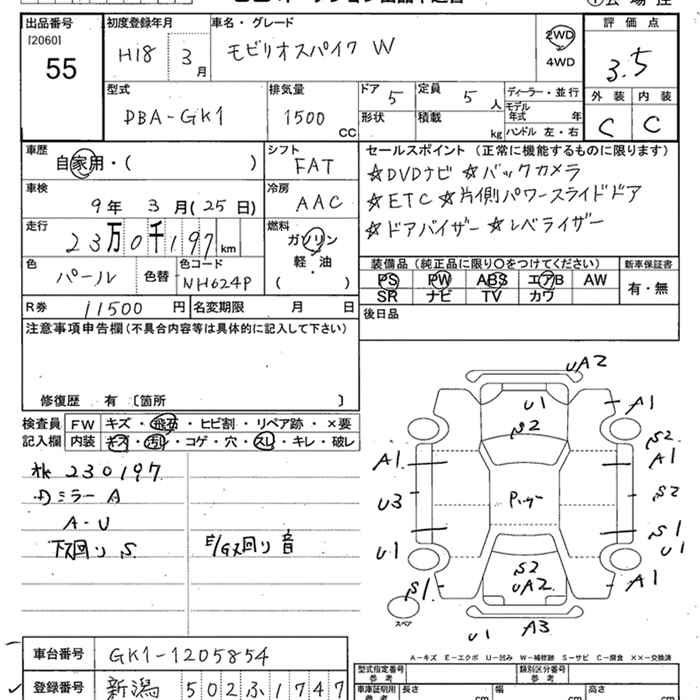 出品番号
[2060]
55
初度登録年月
H18 3月
車名・グレード
モビリオスパイク W
2WD
4WD
評価点
3.5
外装 内装
C C
型式
DBA-GK1
排気量
1500 CC
ドア 5
定員 5 人
形状
積載 kg
ディーラー・並行
モデル年式 年
ハンドル 左・右
車歴
自家用・( )
シフト
FAT
車検
9年 3月(25日)
冷房
AAC
走行
23万0千197km
燃料
ガソリン
軽・油
( )
色
パール
色替
色コード
NH624P
R券 11500円
名変期限 月 日
セールスポイント(正常に機能するものに限ります)
☆DVDナビ ☆バックカメラ
☆ETC ☆片側パワースライドドア
☆ドアバイザー ☆レベライザー
装備品(純正品に限り○をつけてください)
PS PW ABS エアB AW
SR ナビ TV カワ
新車保証書
有・無
後日品
注意事項申告欄(不具合内容等は具体的に記入して下さい)
修復歴 有〔箇所 〕
検査員記入欄
FW キズ・飛石・ヒビ割・リペア跡・×要
内装 キズ・汚レ・コゲ・穴・スレ・キレ・破レ
230197
ミラーA
A-U
下回りS
E/G 回り音
UA2
U1
S2
A1
S2
A1
A1
U3
S2
U1
S1
U1
S2
UA2
S1
A1
スペア
U1
A3
A-キズ E-エクボ U-凹み W-補修跡 S-サビ C-腐食 XX-交換済
車台番号 GK1-1205854
登録番号 新潟 502ふ1747
型式指定番号
参考
類別区分番号
参考
車庫証明用
参考
長さ cm
幅 cm
高さ cm